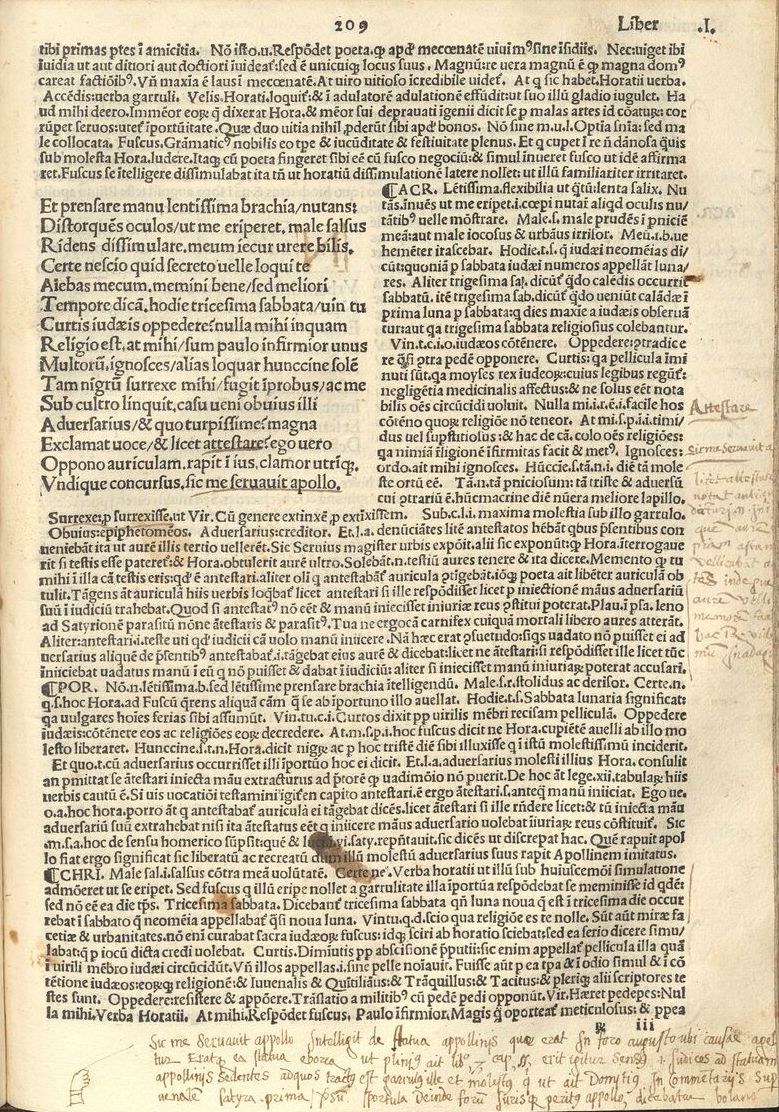 209 Liber .I.
tibi primas ptes ī amicitia. Nō isto.u.Respōdet poeta.ꝙ apd' mecœnatē uiuīm⁹sine īsidiis. Nec:uiget ibi
īuidia ut aut ditiori aut doctiori īuideat᷑:sed ē unicuiq; locus suus. Magnū:re uera magnū ē ꝙ magna dom⁹
careat factiōib⁹. Vn̄ maxīa ē laus ī mecœnatē. At uiro uitioso īcredibile uidet᷑. At q sic habet.Horatii uerba.
Accēdis:uerba garruli. Velis.Horati.loquit᷑:& ī adulatorē adulationē effūdit:ut suo illū gladio iugulet. Ha
ud mihi deero.Immēor eoꝝ q̄ dixerat Hora.& mēor sui deprauati īgenii dicit se p malas artes id cōatuꝝ: cor
rūpet seruos:utet᷑ īportūitate. Quæ duo uitia nihil ꝓderūt sibi apd' bonos. Nō sine m.u.l. Optīa sn̄ia: sed ma
le collocata. Fuscus. Grāmatic⁹ nobilis eo tpe & iucūditate & festiuitate plenus. Et q cupet ī re n̄ dānosa q̄uis
sub molesta Hora.ludere. Itaq; cū poeta fingeret sibi eē cū fusco negociū: & simul īnueret fusco ut idē affirma
ret.Fuscus se ītelligere dissimulabat ita tn̄ ut horatiū dissimulationē latere nollet: ut illū familiariter irritaret.
Et prensare manu lentissima brachia/nutans:
Distorquēs oculos/ut me eriperet. male salsus
Ridens dissimulare.meum iecur urere bilis.
Certe nescio quid secreto uelle loqui te
Aiebas mecum.memini bene/sed meliori
Tempore dicā. hodie tricesima sabbata/uin tu
Curtis iudæis oppedere?nulla mihi inquam
Religio est.at mihi/sum paulo infirmior unus
Multorū.ignosces/alias loquar hunccine solē
Tam nigrū surrexe mihi/fugit īprobus/ac me
Sub cultro linquit.casu ueni obuius illi
Aduersarius/& quo turpissime?magna
Exclamat uoce/& licet attestare?ego uero
Oppono auriculam.rapit ī ius.clamor utrīq;.
Vndique concursus.sic me seruauit apollo.
¶ACR. Lētissima.flexibilia ut q̄tū:lenta salix. Nu
tās.īnuēs ut me eripet.i.cœpi nutai aliqd oculis nu/
tātib⁹ uelle mōstrare. Male.s. male prudēs ī pniciē
meā:aut male iocosus & urbāus irrisor. Meū.i.b.ue
hemēter irascebar. Hodie.t.s. q̄ iudæi neomēias di/
cūt:quoniā p sabbata iudæi numeros appellāt luna/
res. Aliter trigesima sat᷑. dicūt᷑ q̄do calēdis occurrit
sabbatū. itē trigesima sab.dicūt᷑ q̄do ueniūt calādæ ī
prima luna p sabbata:q dies maxīe a iudæis obserua
tur:aut qa trigesima sabbata religiosius colebantur.
Vin.t.c.i.o.iudæos cōtēnere. Oppedere:ꝯtradice
re q̄si ꝯtra pedē opponere. Curtis: qa pellicula īmi
nuti sūt.qa moyses rex iudeoꝝ:cuius legibus regūt᷑:
neglīgētia medicinalis affectus:& ne solus eēt nota
bilis oēs circūcidi uoluit. Nulla mi.i.r.ē.i.facile hos
cōtēno quoꝝ religiōe nō teneor. At mi.s.p.i.t.timi/
dus uel supstitiosus : & hac de cā. colo oēs religiōes:
qa nimiā īligionē īfirmitas facit & met⁹. Ignosces:
ordo.ait mihi ignosces. Hūccie.s.tā.n.i. diē tā mole
ste ortū eē. Tā.n.tā pniciosum: tā triste & aduersū
cui ꝯtrariū ē.hūcmacrine diē nūera meliore lapillo.
Surrexe:p surrexisse.ut Vir. Cū genere extinxē p extinxissem. Sub.c.l.i. maxima molestia sub illo garrulo.
Obuius:epiphetomēos. Aduersarius:creditor. Et.l.a.denūciātes litē antestatos hēbāt qbus p̄sentibus con
ueniebāt ita ut aurē illis tertio uellerēt. Sic Seruius magister urbis expōit.alii sic exponūt:ꝙ Hora.īterrogaue
rit si testis esse pateret᷑:& Hora.obtulerit aurē ultro. Solebāt.n.testiū aures tenere & ita dicere. Memento ꝙ tu
mihi ī illa cā testis eris:qd' ē antestari.aliter oli q antestabāt᷑ auricula ꝯtīgebāt.iōq; poeta ait libēter auriculā ob
tulit. Tāgens āt auriculā hiis uerbis loqbat᷑ licet antestari si ille respōdisset licet p iniectionē māus aduersariū
suū ī iudiciū trahebat. Quod si antestat⁹ nō eēt & manū iniecisset iniuriæ reus ꝯstitui poterat. Plau.ī psa. leno
ad Satyrionē parasitū nōne ātestaris & parasit⁹. Tua ne ergo cā carnifex cuiquā mortali libero aures atterāt.
Aliter:antestari.i.teste uti qd' iudicii cā uolo manū iniicere. Nā hæc erat ꝯsuetudo:siqs uadato nō puisset ei ad
uersarius aliquē de p̄sentib⁹ antestabat᷑.i.tāgebat eius aurē & dicebat:licet ne ātestari:si respōdisset ille licet tūc
īniiciebat uadatus manū ī eū q nō puisset & dabat ī iudiciū: aliter si iniecisset manū iniuriaꝝ poterat accusari.
¶POR. Nō.n.lētissima.b.sed lētissime prensare brachia ītelligendū. Male.s.r.stolidus ac derisor. Certe.n.
q.s.hoc Hora.ad Fuscū q̄rens aliquā cām q̄ se ab īportuno illo auellat. Hodie.t.s. Sabbata lunaria significat:
qa uulgares hoies ferias sibi assumūt. Vin.tu.c.i. Curtos dixit pp uirilis mēbri recisam pelliculā. Oppedere
iudæis:cōtēnere eos ac religiōes eoꝝ decredere. At.m.s.p.i.hoc fuscus dicit ne Hora.cupiētē auelli ab illo mo
lesto liberaret. Hunccine.s.t.n.Hora.dicit nigꝝ ac p hoc tristē diē sibi illuxisse q ī istū molestissimū inciderit.
Et quo.t.cū aduersarius occurrisset illi īportūo hoc ei dicit. Et.l.a.aduersarius molesti illius Hora. consulit
an pmittat se ātestari iniecta māu extracturus ad p̄torē ꝙ uadimōio nō puerit. De hoc āt lege.xii.tabulaꝝ hiis
uerbis cautū ē. Si uis uocatiōi testamini igit᷑en capito antestari.ē ergo ātestari.s.anteq̄ manū iniiciat. Ego ue.
o.a.hoc hora.porro āt q antestabat᷑ auriculā ei tāgebat dicēs.licet ātestari si ille rn̄dere licet:& tū iniecta māu
adversariū suū extrahebat nisi ita ātestatus eēt q iniicere māus aduersario uolebat iiuriaꝝ reus cōstituit᷑. Sic
.m.s.a.hoc de sensu homerico sūpsit:quē & .vi.saty.repn̄tauit.sic dicēs ut discrepat hac. Quē rapuit apol
lo fiat ergo significat sic liberatū ac recreatū dum illū molestū aduersarius suus rapit Apollinem imitatus.
¶CHRI. Male sal.i.salsus cōtra meā uolūtatē. Certe ne. Verba horatii ut illū sub huiuscemōi simulatione
admōeret ut se eripet. Sed fuscus q illū eripe nollet a garrulitate illa īportūa respōdebat se meminisse id qdēt
sed nō eē ea die tp̄s. Tricesima sabbata. Dicebant᷑ tricesima sabbata qn̄ luna noua q̄ est ī tricesima die occur
rebat ī sabbato q̄ neomēia appellabat᷑ qsi noua luna. Vintu.q.d.scio qua religiōe es te nolle. Sūt aūt miræ fa
cetiæ & urbanitates.nō eni curabat sacra iudæoꝝ fuscus: idq; sciri ab horatio sciebat:sed ea serio dicere simu/
labat:q̄ p iocū dicta credi uolebat. Curtis. Diminutis pp abscisionē p̄putii:sic enim appellat᷑ pellicula illa quā
ī uirili mēbro iudæi circūcidūt. Vn̄ illos appellas.i.sine pelle noīauit. Fuisse aūt p ea tpa & ī odio simul & ī cō
tētione iudæos:eoꝝq; religionē:& Iuuenalis & Quītiliāus:& Trāquillus:& Tacitus:& pleriq; alii scriptores te
stes sunt. Oppedere:resistere & appōere. Trāslatio a militib⁹ cū pedē pedi opponūt. Vir. Hæret pedepes: Nul
la mihi.Verba Horatii. At mihi.Respōdet fuscus. Paulo īfirmior. Magis q̄ oporteat meticulosus: & ppea
iii
Attestare
sic me seruauit a
Sic me seruauit appollo Intelligit de statua appollinis que erat In foro augusto ubi causae age
tur Erat ea statua eborea ut plinius ait lib cap erit igitur sensus Iudices ad statuam
appollinis sedentes adquos tractus est garrulus ille et molestus ut ait Domitius In Commentariis Iup
uenalis satyra prima sportula Deinde forum Iurisque peritus appollo